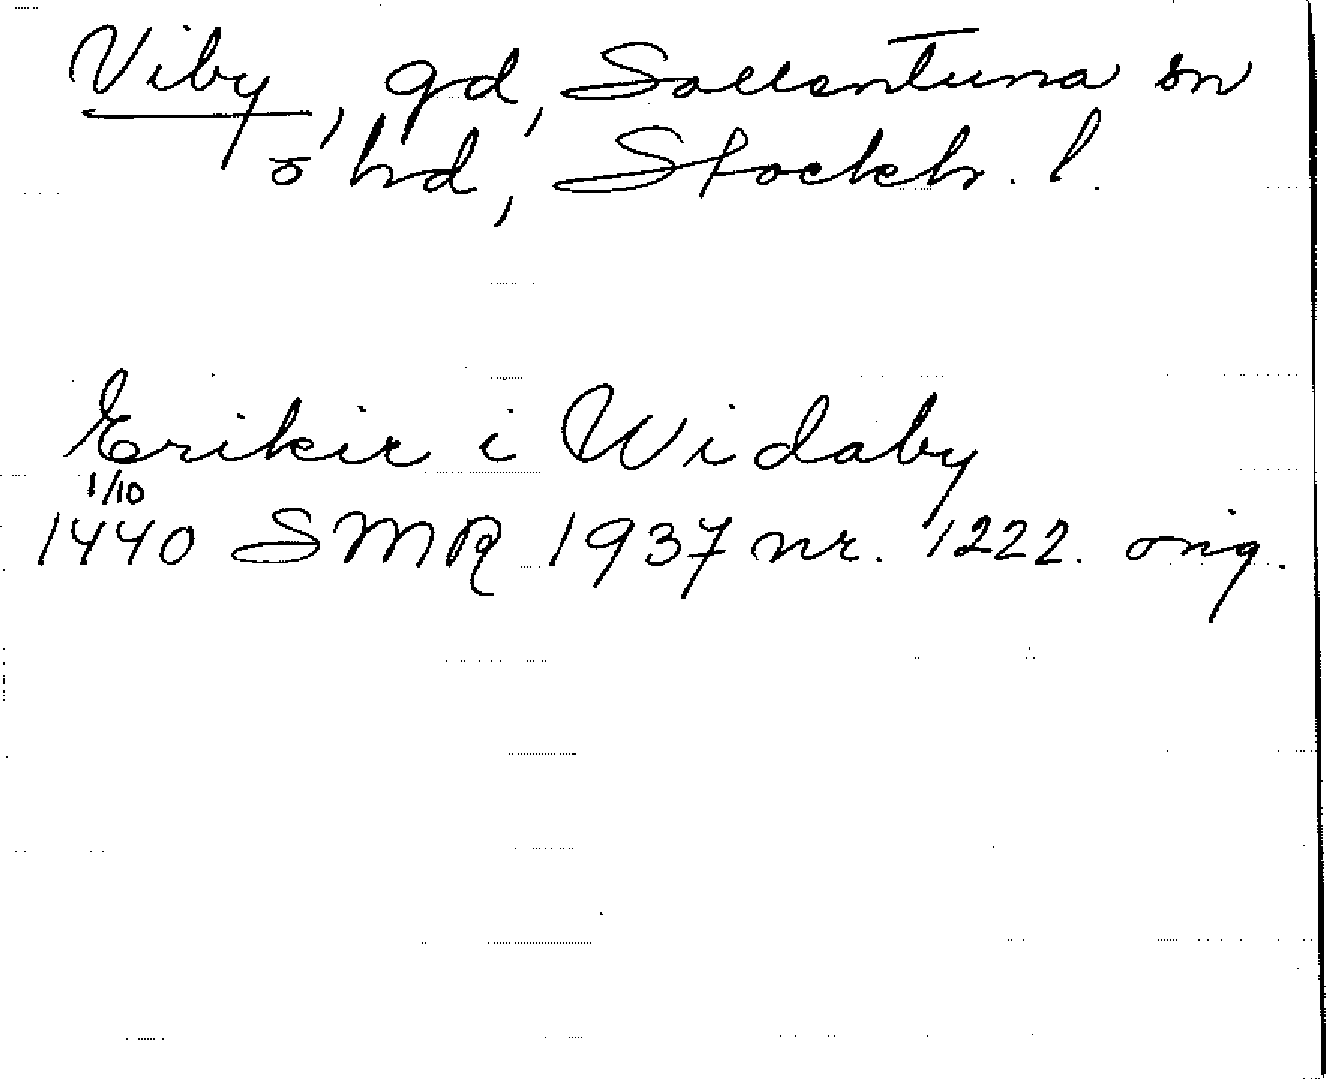 Viby, gd, Sollentuna sn
o hd, Stockh. l.
Erikir i Widaby
1/10
1440 SMR 1937 nr. 1222. orig.